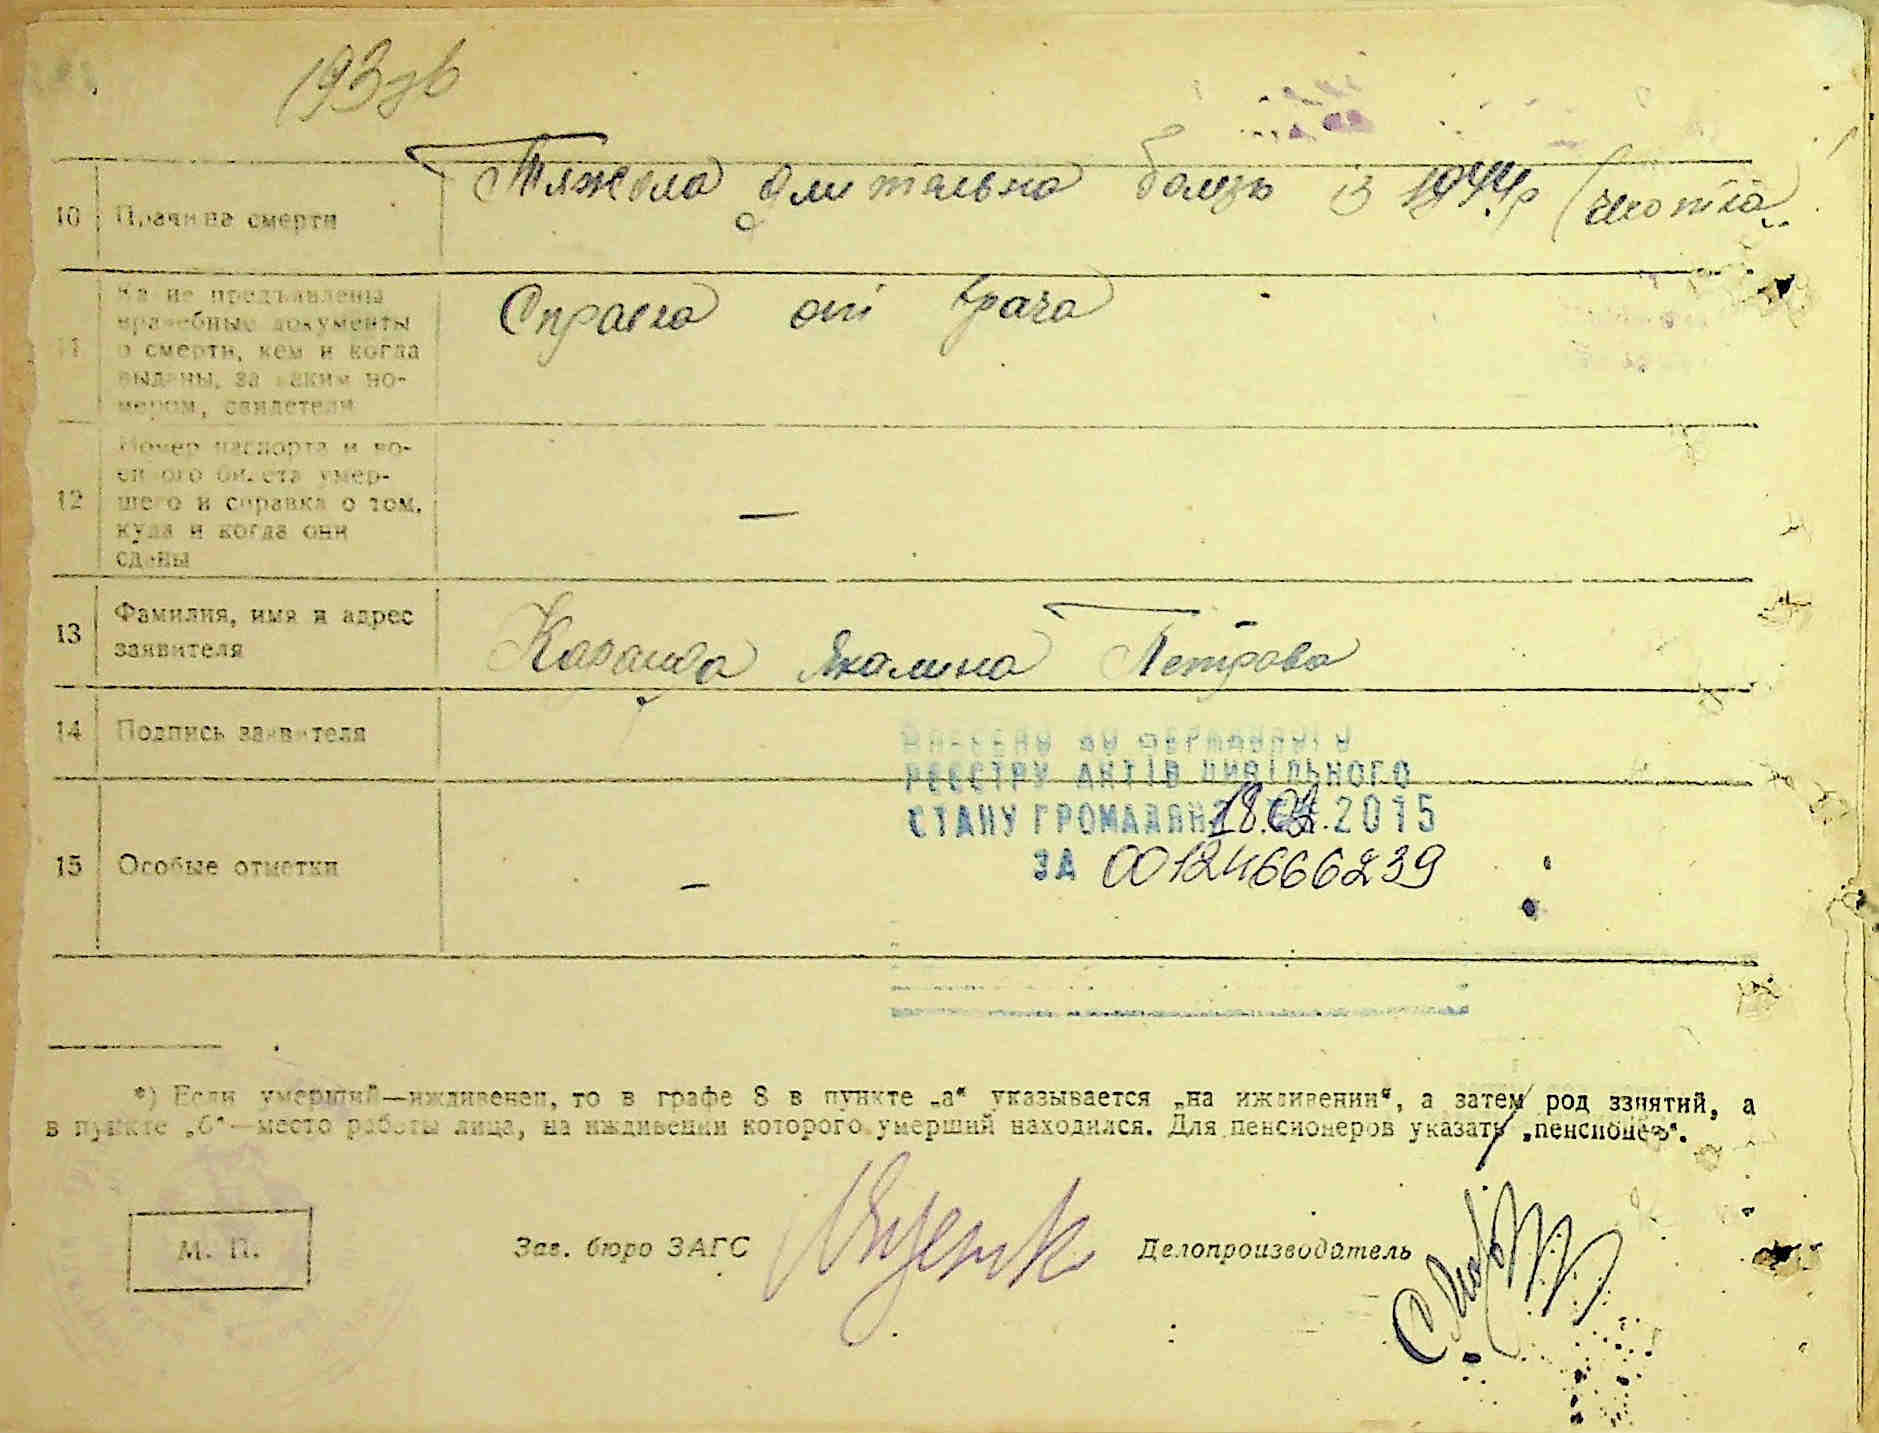 193
Тяжола длительна болезь із 1944р (чехотка
10 Причина смерти
Справка от врача
11 Какие предъявлены
врачебные документы
о смерти, кем и когда
выданы, за каким но-
мером, свидетели
12 Номер паспорта и во-
енного билета умер-
шего и справка о том,
куда и когда они
сданы
—
13 Фамилия, имя и адрес
заявителя
Петрова
14 Подпись заявителя
ВНЕСЕНО ДО ДЕРЖАВНОГО
РЕЄСТРУ АКТІВ ЦИВІЛЬНОГО
СТАНУ ГРОМАДЯН 2015
ЗА 00124666239
15 Особые отметки
—
*) Если умерший—иждивенец, то в графе 8 в пункте „а“ указывается „на иждивении“, а затем род занятий, а
в пункте „б“—место работы лица, на иждивении которого умерший находился. Для пенсионеров указать „пенсионер“.
М. П.
Зав. бюро ЗАГС
Делопроизводитель